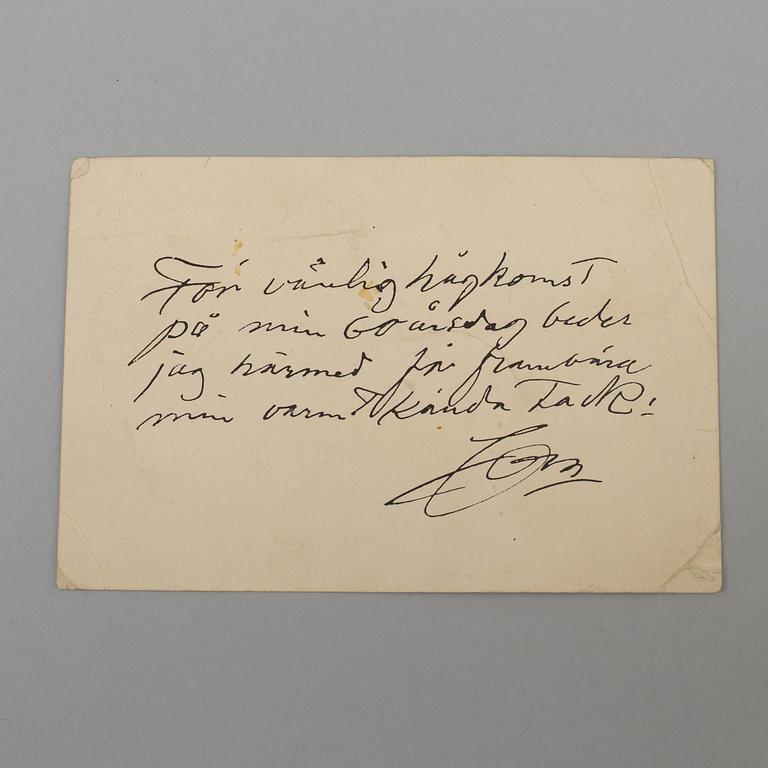 För vänlig hågkomst
på min 60 årsdag beder
jag härmed få frambära
min varmt kända Tack!